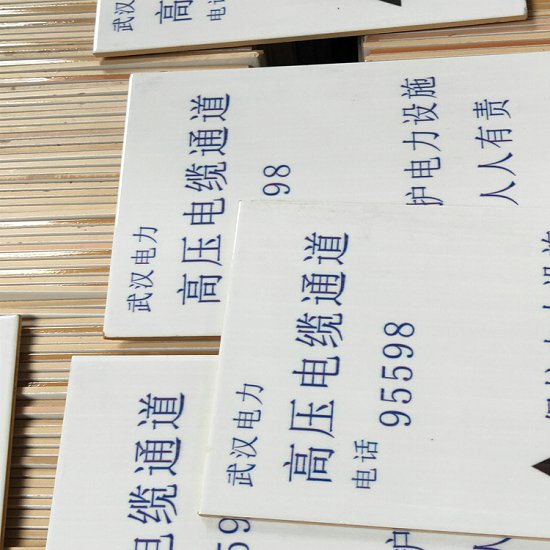 武汉电力
高压
电话
武汉电力
高压电缆通道
98
护电力设施
人人有责
武汉电力
高压电缆通道
电话 95598
电缆通道
59
护
人